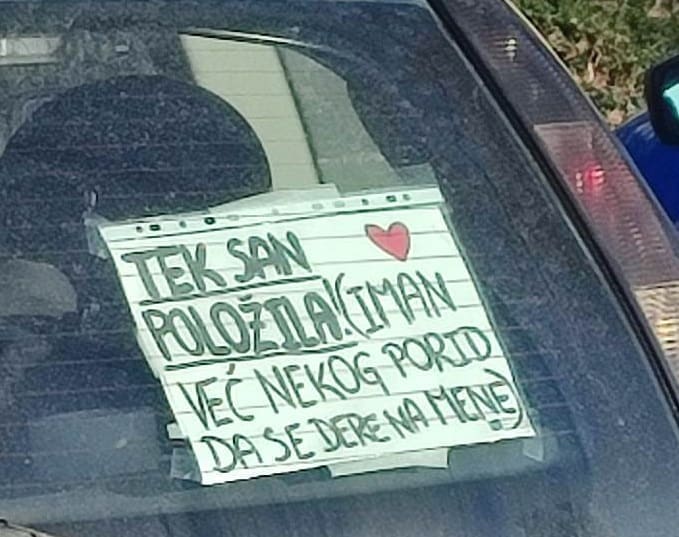 TEK SAN
POLOŽILA!(IMAN
VEĆ NEKOG PORID
DA SE DERE NA MENE)